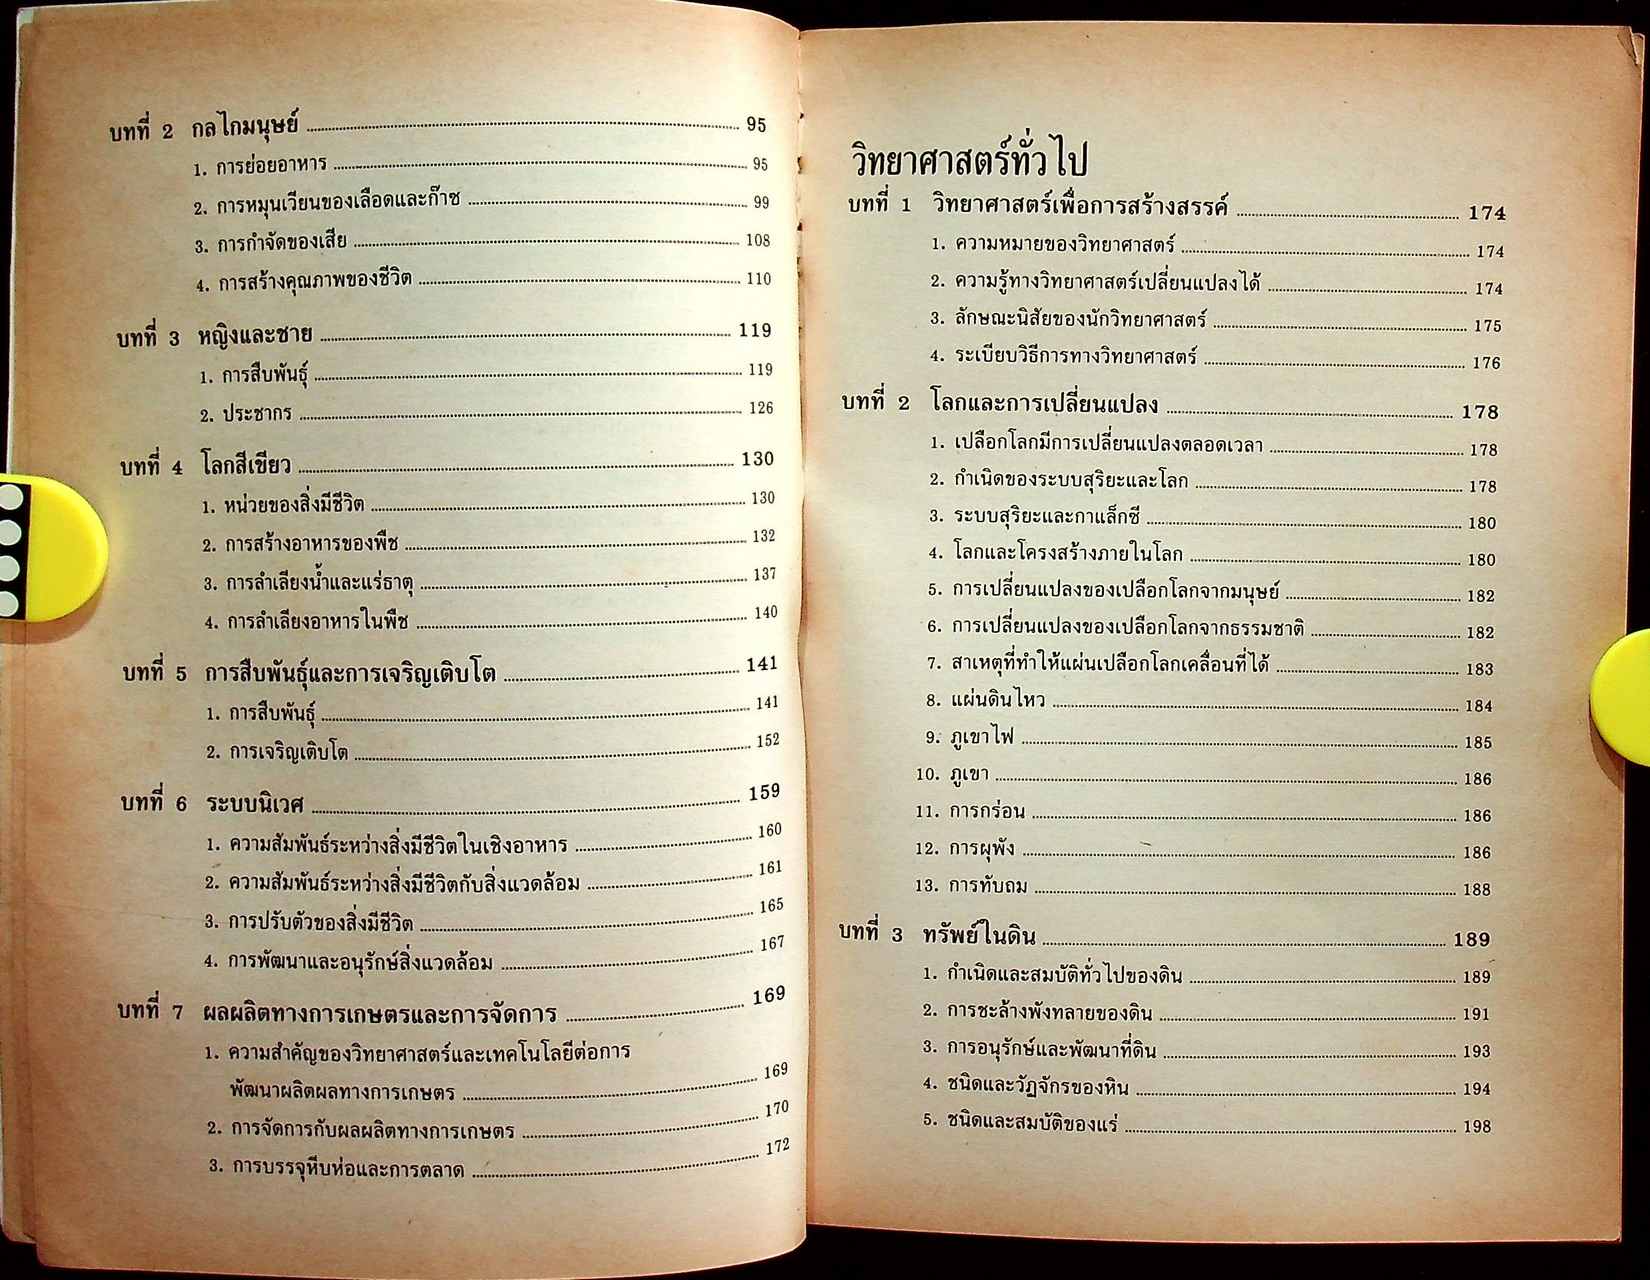 บทที่ 2 กลไกมนุษย์ ........ 95
1. การย่อยอาหาร ........ 95
2. การหมุนเวียนของเลือดและก๊าซ ........ 99
3. การกำจัดของเสีย ........ 108
4. การสร้างคุณภาพของชีวิต ........ 110
บทที่ 3 หญิงและชาย ........ 119
1. การสืบพันธุ์ ........ 119
2. ประชากร ........ 126
บทที่ 4 โลกสีเขียว ........ 130
1. หน่วยของสิ่งมีชีวิต ........ 130
2. การสร้างอาหารของพืช ........ 132
3. การลำเลียงน้ำและแร่ธาตุ ........ 137
4. การลำเลียงอาหารในพืช ........ 140
บทที่ 5 การสืบพันธุ์และการเจริญเติบโต ........ 141
1. การสืบพันธุ์ ........ 141
2. การเจริญเติบโต ........ 152
บทที่ 6 ระบบนิเวศ ........ 159
1. ความสัมพันธ์ระหว่างสิ่งมีชีวิตในเชิงอาหาร ........ 160
2. ความสัมพันธ์ระหว่างสิ่งมีชีวิตกับสิ่งแวดล้อม ........ 161
3. การปรับตัวของสิ่งมีชีวิต ........ 165
4. การพัฒนาและอนุรักษ์สิ่งแวดล้อม ........ 167
บทที่ 7 ผลผลิตทางการเกษตรและการจัดการ ........ 169
1. ความสำคัญของวิทยาศาสตร์และเทคโนโลยีต่อการ
พัฒนาผลิตผลทางการเกษตร ........ 169
2. การจัดการกับผลผลิตทางการเกษตร ........ 170
3. การบรรจุหีบห่อและการตลาด ........ 172
วิทยาศาสตร์ทั่วไป
บทที่ 1 วิทยาศาสตร์เพื่อการสร้างสรรค์ ........ 174
1. ความหมายของวิทยาศาสตร์ ........ 174
2. ความรู้ทางวิทยาศาสตร์เปลี่ยนแปลงได้ ........ 174
3. ลักษณะนิสัยของนักวิทยาศาสตร์ ........ 175
4. ระเบียบวิธีการทางวิทยาศาสตร์ ........ 176
บทที่ 2 โลกและการเปลี่ยนแปลง ........ 178
1. เปลือกโลกมีการเปลี่ยนแปลงตลอดเวลา ........ 178
2. กำเนิดของระบบสุริยะและโลก ........ 178
3. ระบบสุริยะและกาแล็กซี ........ 180
4. โลกและโครงสร้างภายในโลก ........ 180
5. การเปลี่ยนแปลงของเปลือกโลกจากมนุษย์ ........ 182
6. การเปลี่ยนแปลงของเปลือกโลกจากธรรมชาติ ........ 182
7. สาเหตุที่ทำให้แผ่นเปลือกโลกเคลื่อนที่ได้ ........ 183
8. แผ่นดินไหว ........ 184
9. ภูเขาไฟ ........ 185
10. ภูเขา ........ 186
11. การกร่อน ........ 186
12. การผุพัง ........ 186
13. การทับถม ........ 188
บทที่ 3 ทรัพย์ในดิน ........ 189
1. กำเนิดและสมบัติทั่วไปของดิน ........ 189
2. การชะล้างพังทลายของดิน ........ 191
3. การอนุรักษ์และพัฒนาที่ดิน ........ 193
4. ชนิดและวัฏจักรของหิน ........ 194
5. ชนิดและสมบัติของแร่ ........ 198